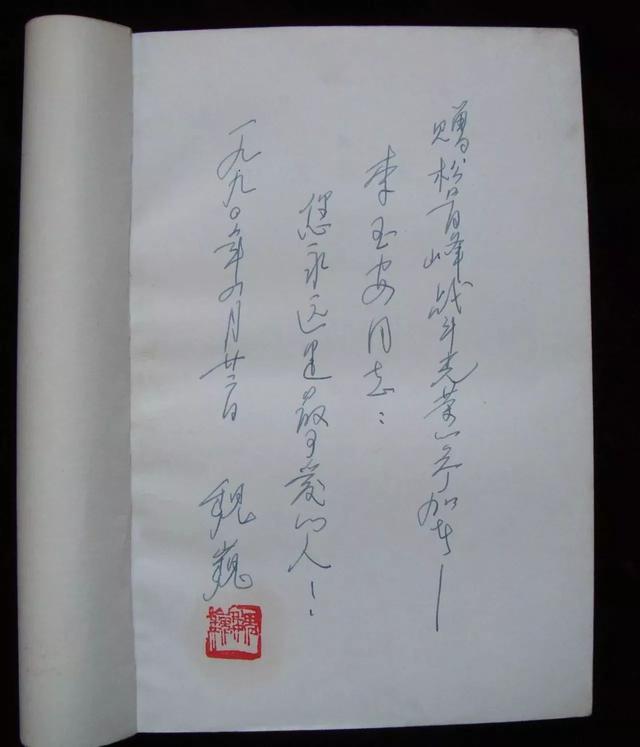 赠松骨峰战斗光荣的参加者——
李玉安同志：
您永远是最可爱的人！
一九九〇年四月廿二日
魏巍